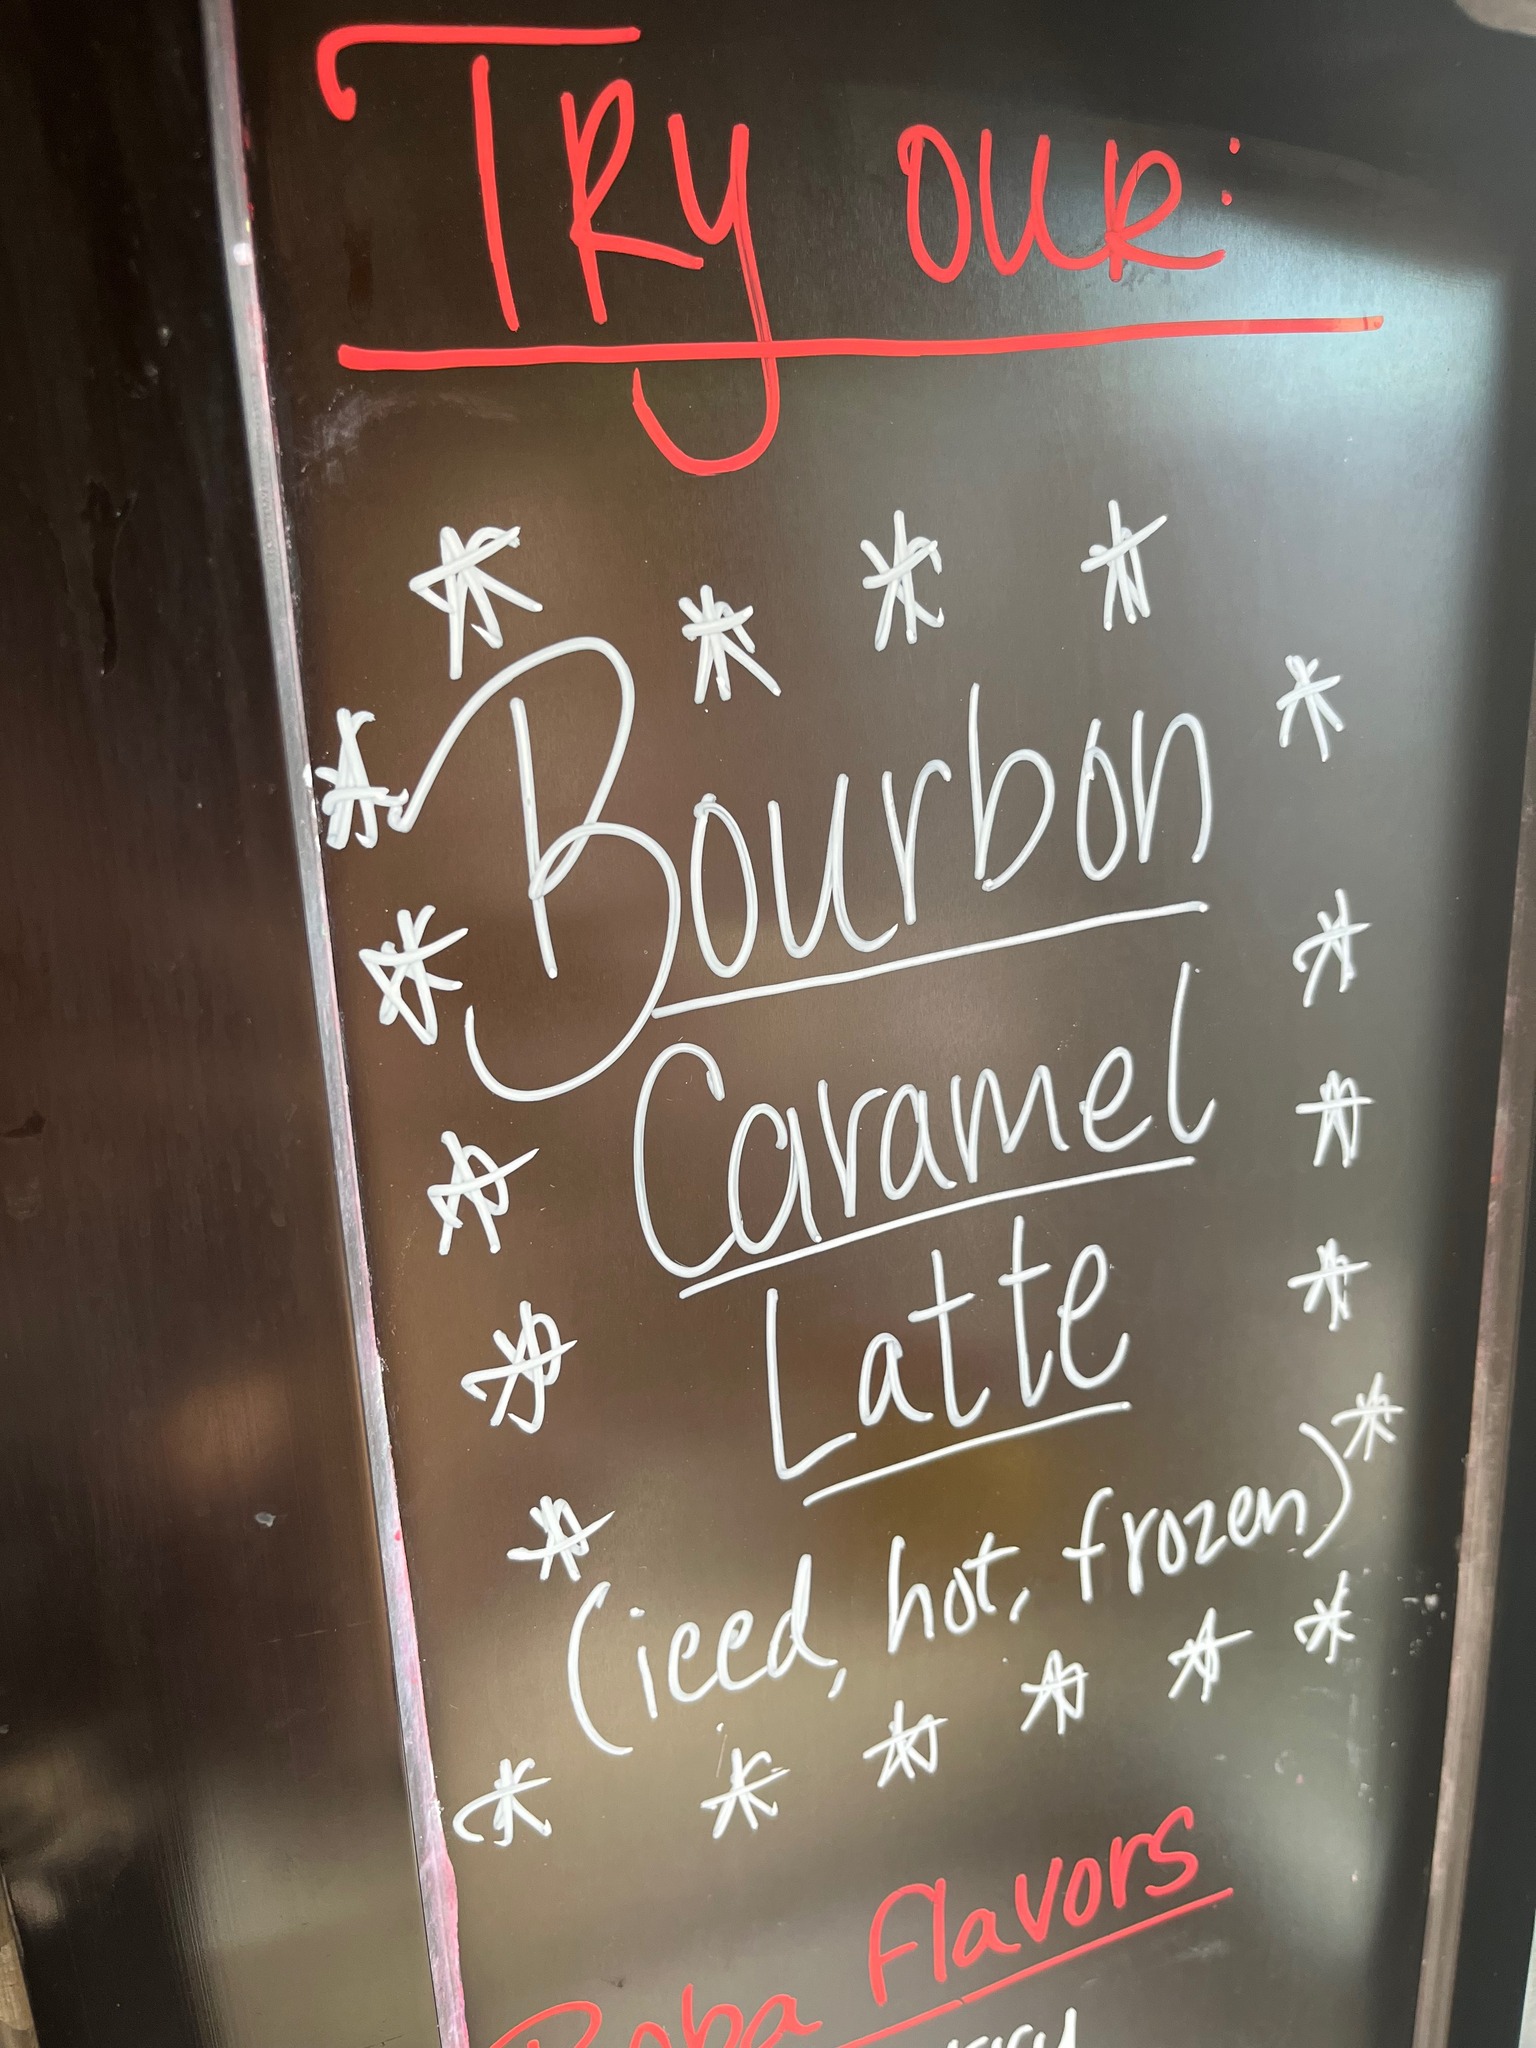 TRy OUR:
Bourbon
Caramel
Latte
(iced, hot, frozen)
Boba Flavors